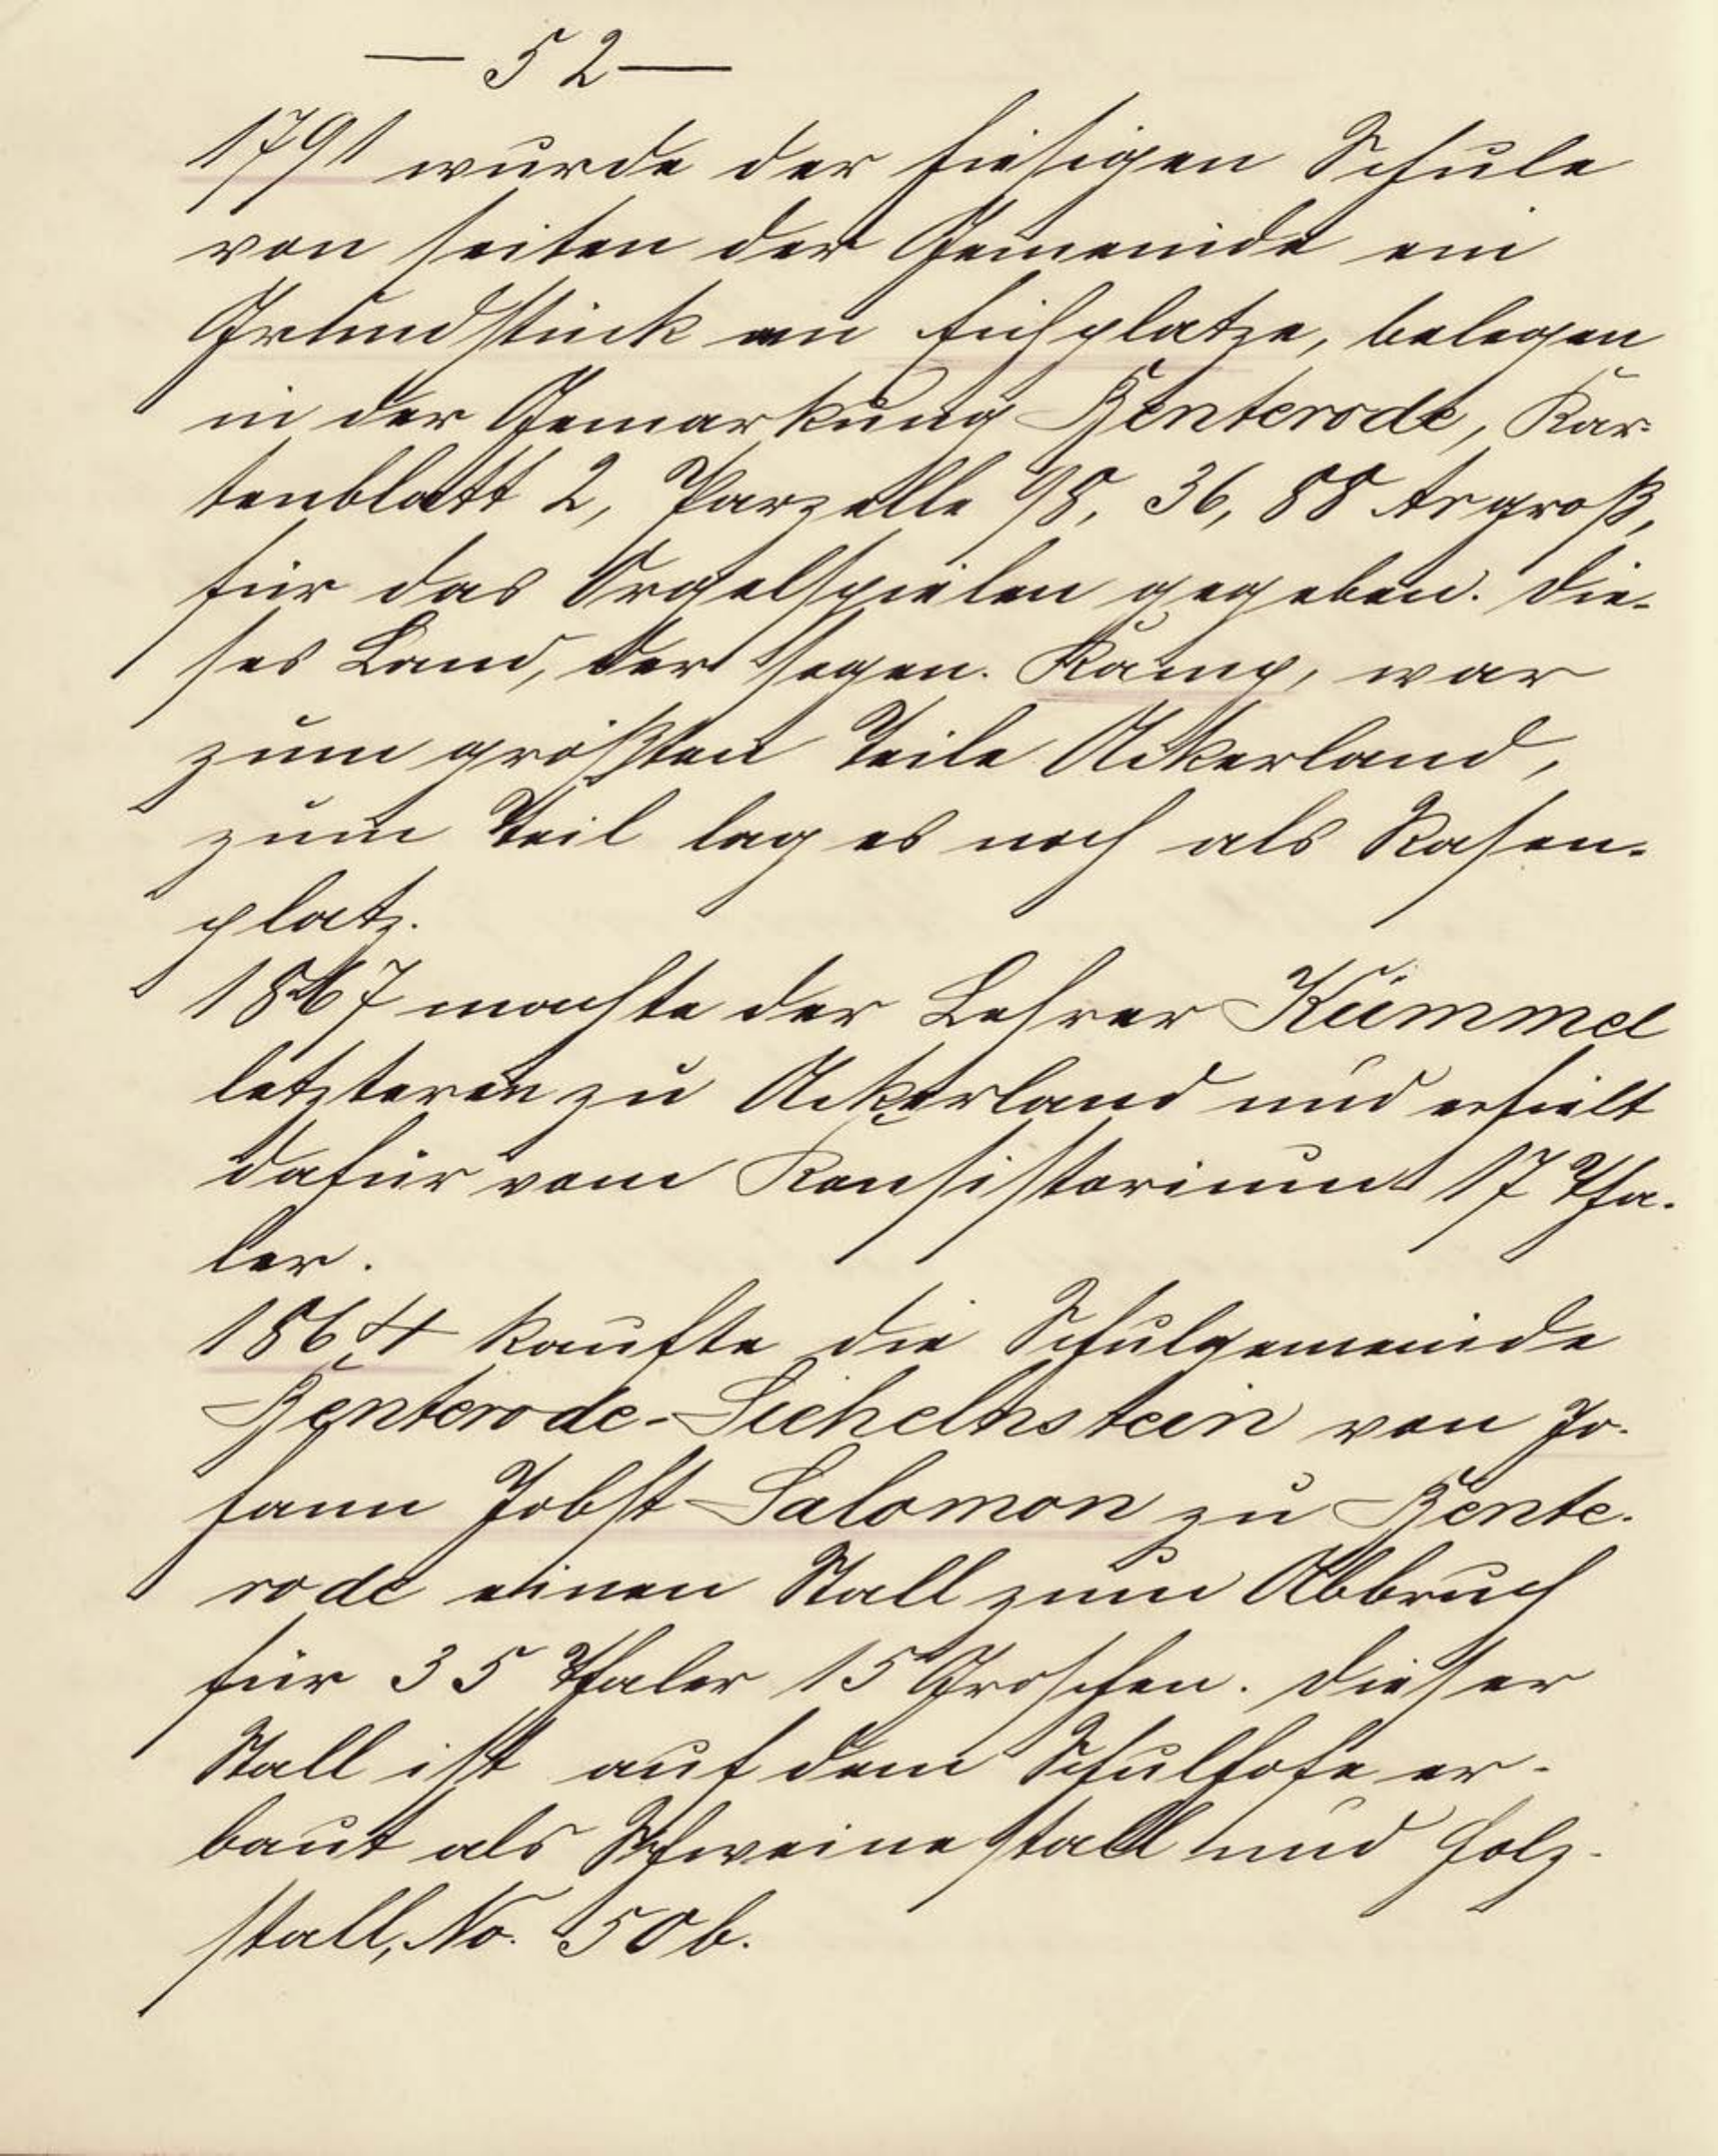 — 52 —
1791 wurde der hiesigen Schule
von seiten der Gemeinde ein
Grundstück am Eichplatze, belegen
in der Gemarkung Benterode, Kar-
tenblatt 2, Parzelle 98, 36,88 Ar groß,
für das Orgelspielen gegeben. Die-
ses Land, der sogen. Kamp, war
zum größten Teile Ackerland,
zum Teil lag es noch als Rasen-
platz.
1867 machte der Lehrer Kümmel
letzteren zu Ackerland und erhielt
dafür vom Konsistorium 17 Tha-
ler.
1864 kaufte die Schulgemeinde
Benterode-Sichelnstein von Jo-
hann Jobst Salomon zu Bente-
rode einen Stall zum Abbruch
für 35 Thaler 15 Groschen. Dieser
Stall ist auf dem Schulhofe er-
baut als Schweinestall und Holz-
stall, No. 50b.